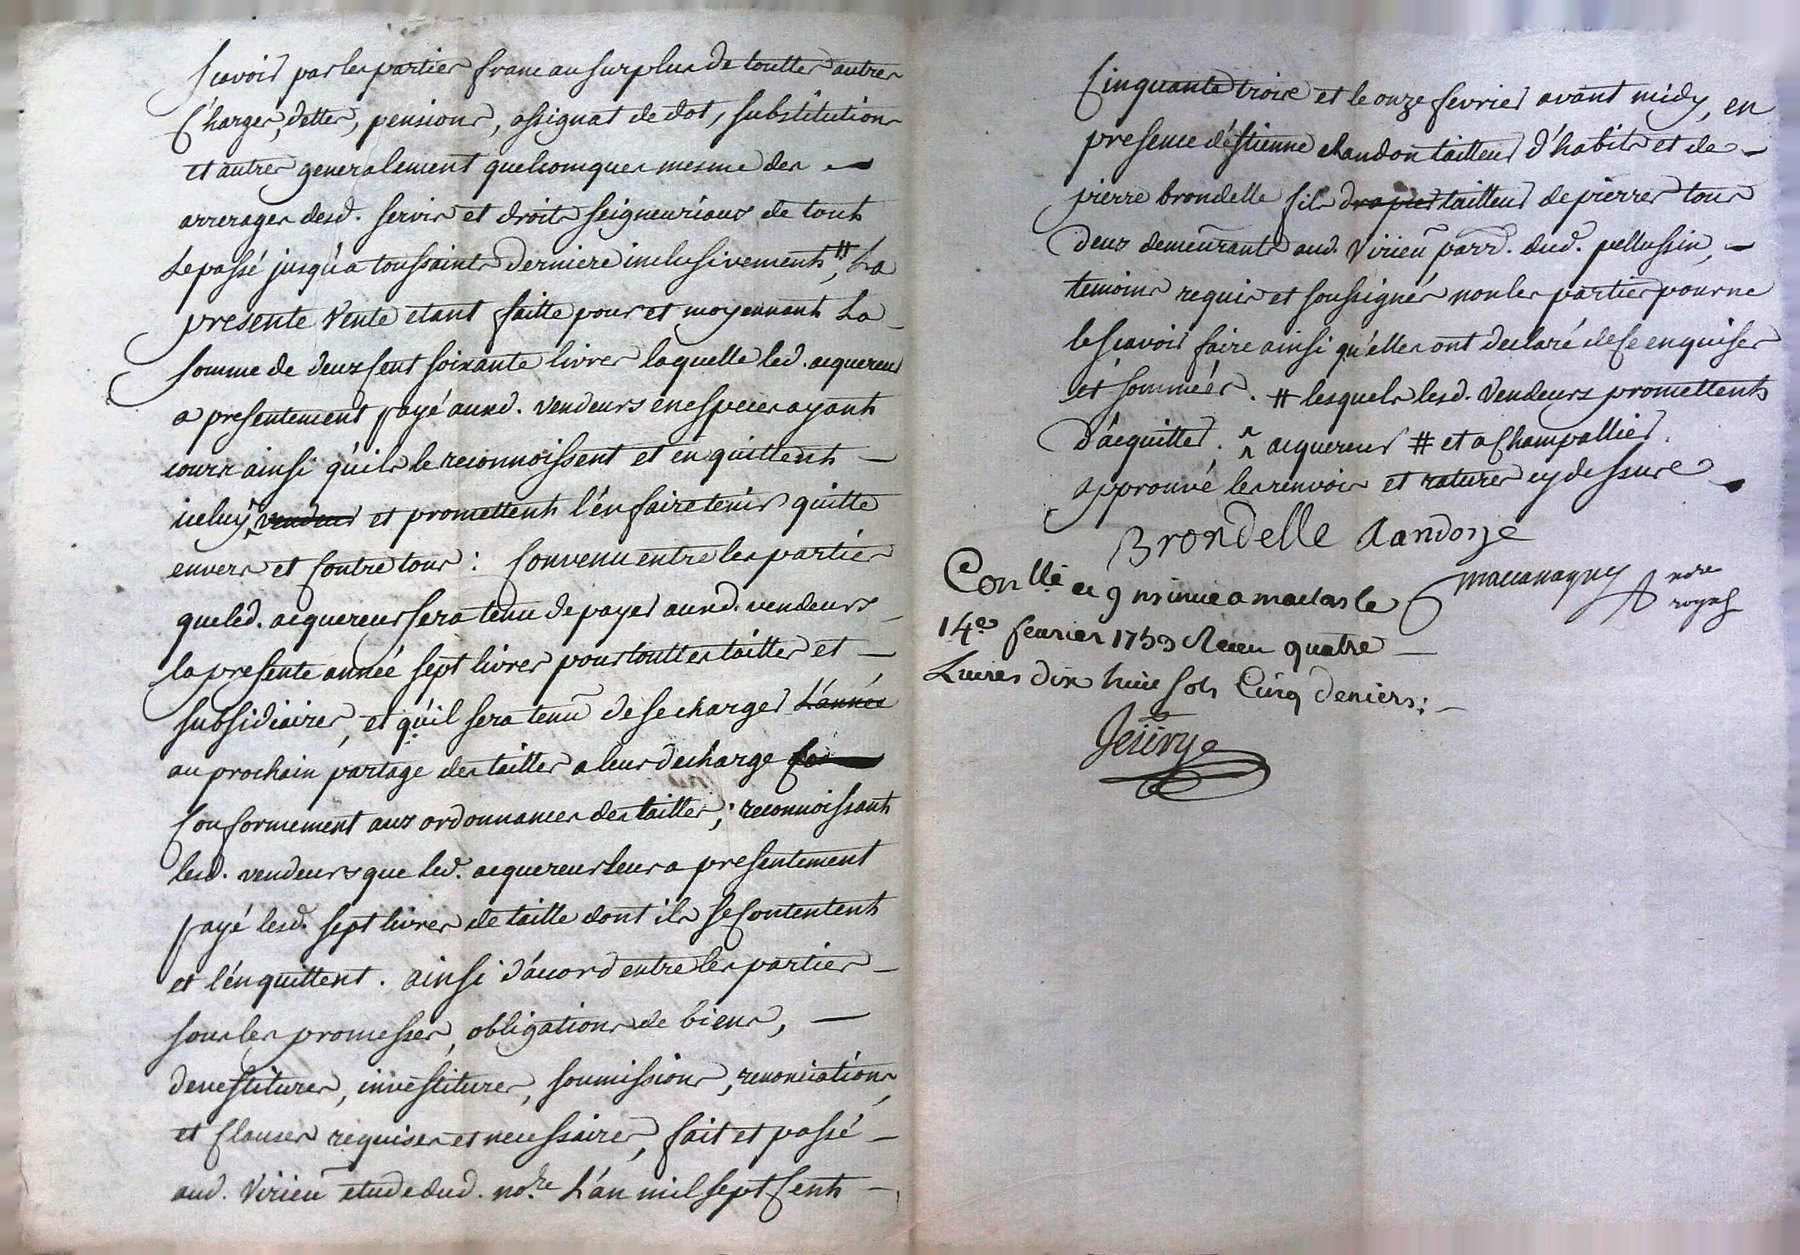 scavoir par les parties franc au surplus de touttes autres
charges, dettes, pensions, assignat de dot, substitutions
et autres generalement quelconques mesme des
arrerages desd. servis et droits seigneuriaux de tout
le passé jusqu'a toussaints derniere inclusivement, # La
presente Vente etant faitte pour et moyennant La
somme de deux cent soixante livres laquelle led. acquereur
a presentement payé auxd. vendeurs en especes ayant
cours ainsi qu'ils le reconnoissent et en quittent
iceluy vendeur et promettent l'en faire tenir quitte
envers et contre tous : Convenu entre les parties
que led. acquereur sera tenu de payer auxd. vendeurs
la presente année sept livres pour touttes tailles et
subsidiaires, et qu'il sera tenu de se charger L'année
au prochain partage des tailles a leur decharge
Conformement aux ordonnances des tailles ; reconnoissant
lesd. vendeurs que led. acquereur leur a presentement
payé lesd. sept livres de taille dont ils se Contentent
et l'en quittent. ainsi d'accord entre les parties
sous les promesses, obligations de biens,
devestitures, investitures, soumissions, renonciations
et Clauses requises et necessaires, fait et passé
aud. Virieu etude dud. no.re L'an mil sept Cent
Cinquante trois et le onze fevrier avant midy, en
presence d'éstienne chandon tailleur d'habits et de
pierre brondelle fils drapier tailleur de pierres tous
deux demeurants aud. Virieu parr. dud. pellussin,
temoins requis et soussignés non les parties pour ne
le scavoir faire ainsi qu'elles ont declaré de ce enquises
et sommées. # lesquels lesd. Vendeurs promettent
d'acquitter. ^ acquereur # et a Champallier.
approuvé les renvois et ratures cy dessus
Brondelle
Con.llé et insinué a maclas le
14e fevrier 1753 Receu quatre
Livres dix huit sols Cinq deniers :